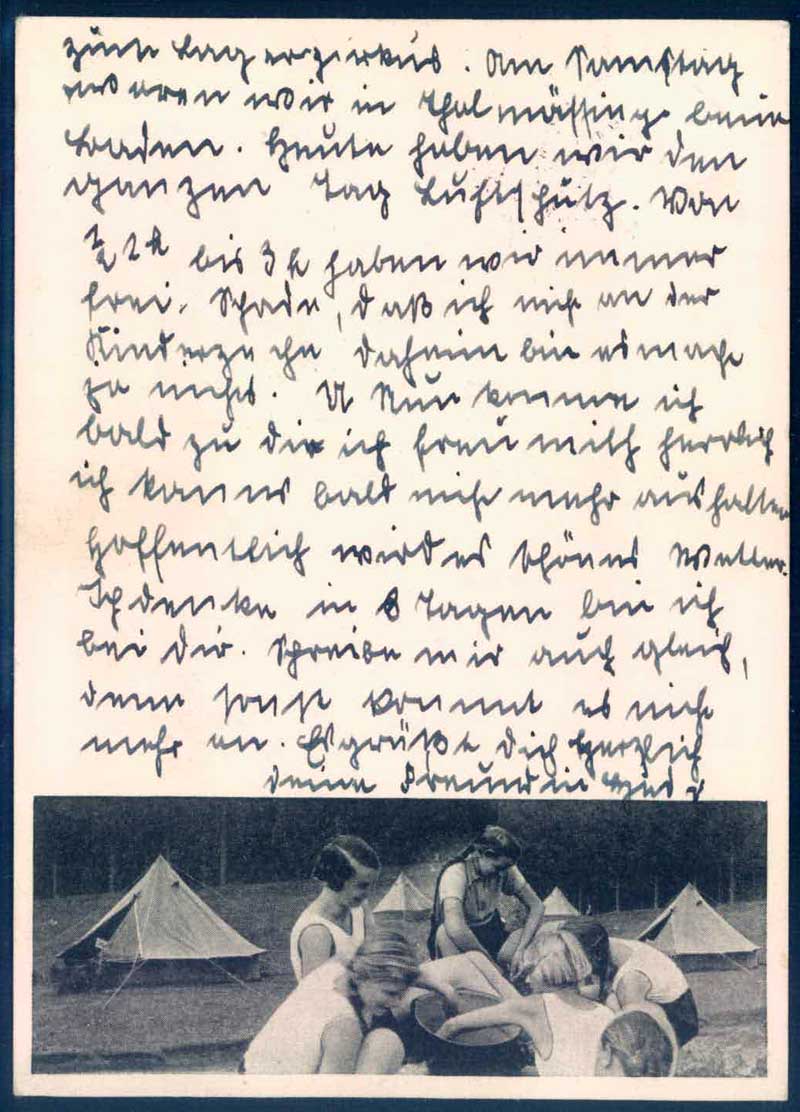 zum Lagerzirkus. Am Samstag
waren wir in Thalmässing beim
Baden. Heute haben wir den
ganzen Tag Luftschutz. Von
½ 2 h bis 3 h haben wir immer
frei. Schade, daß ich nich an der
Kinderzeche daheim bin es mach
ja nichts. U Nun komme ich
bald zu dir ich freu mich herrlich
ich kanns bald nich mehr aushalten
Hoffentlich wird es schönes Wetter.
Ich denke in 8 Tagen bin ich
bei dir. Schreibe mir auch gleich,
denn sonst kommt es nich
mehr an. Es grüßt dich herzlich
deine Freundin